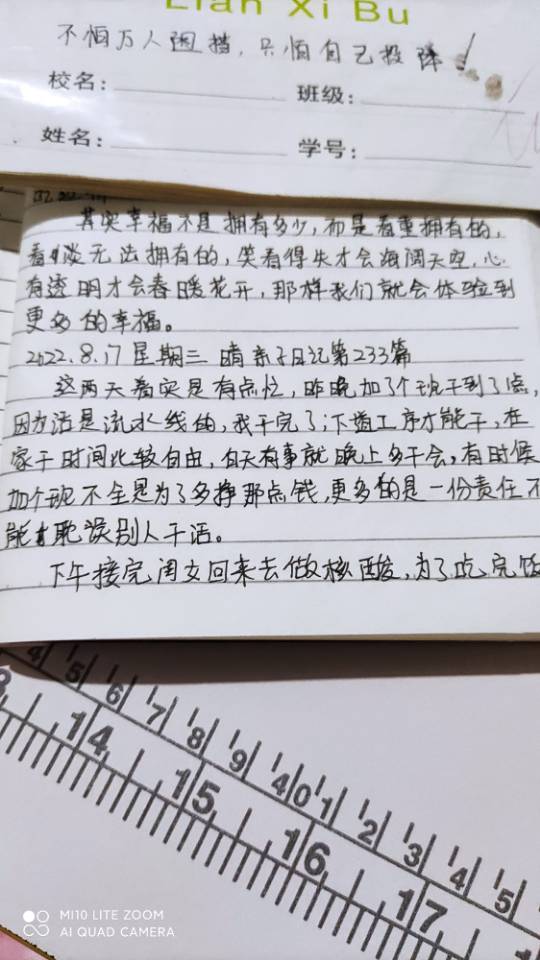 Lian Xi Bu
不怕万人阻挡,只怕自己投降!
校名:
班级:
姓名:
学号:
其实幸福不是拥有多少,而是看重拥有的,
看淡无法拥有的,笑看得失才会海阔天空,心
有透明才会春暖花开,那样我们就会体验到
更多的幸福。
2022.8.17 星期三 晴 亲子日记第233篇
这两天着实是有点忙,昨晚加了个班干到了1点,
因为活是流水线的,我干完了,下道工序才能干,在
家干时间比较自由,白天有事就晚上多干会,有时候
加个班不全是为了多挣那点钱,更多的是一份责任不
能才耽误别人干活。
下午接完闺女回来去做核酸,为了吃完饭
4 '5 '6 '7 '8 '9 '40 '1 '2 '3 '4 '5
3 14 15 16 17
MI10 LITE ZOOM
AI QUAD CAMERA